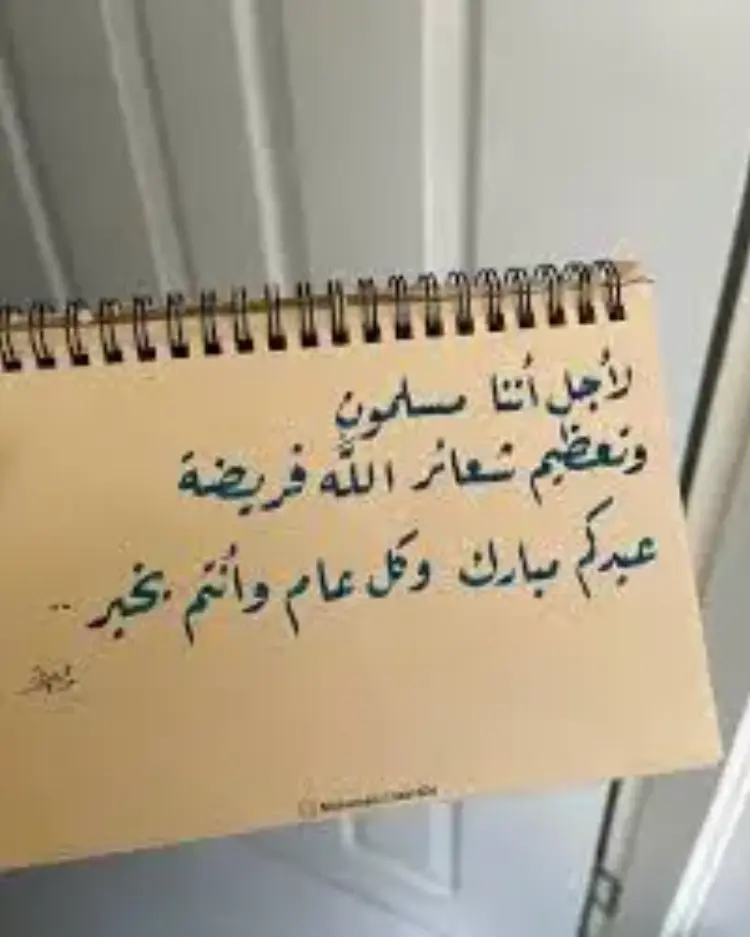 لأجل أننا مسلمون
وتعظيم شعائر اللّه فريضة
عيدكم مبارك وكل عام وأنتم بخير ..